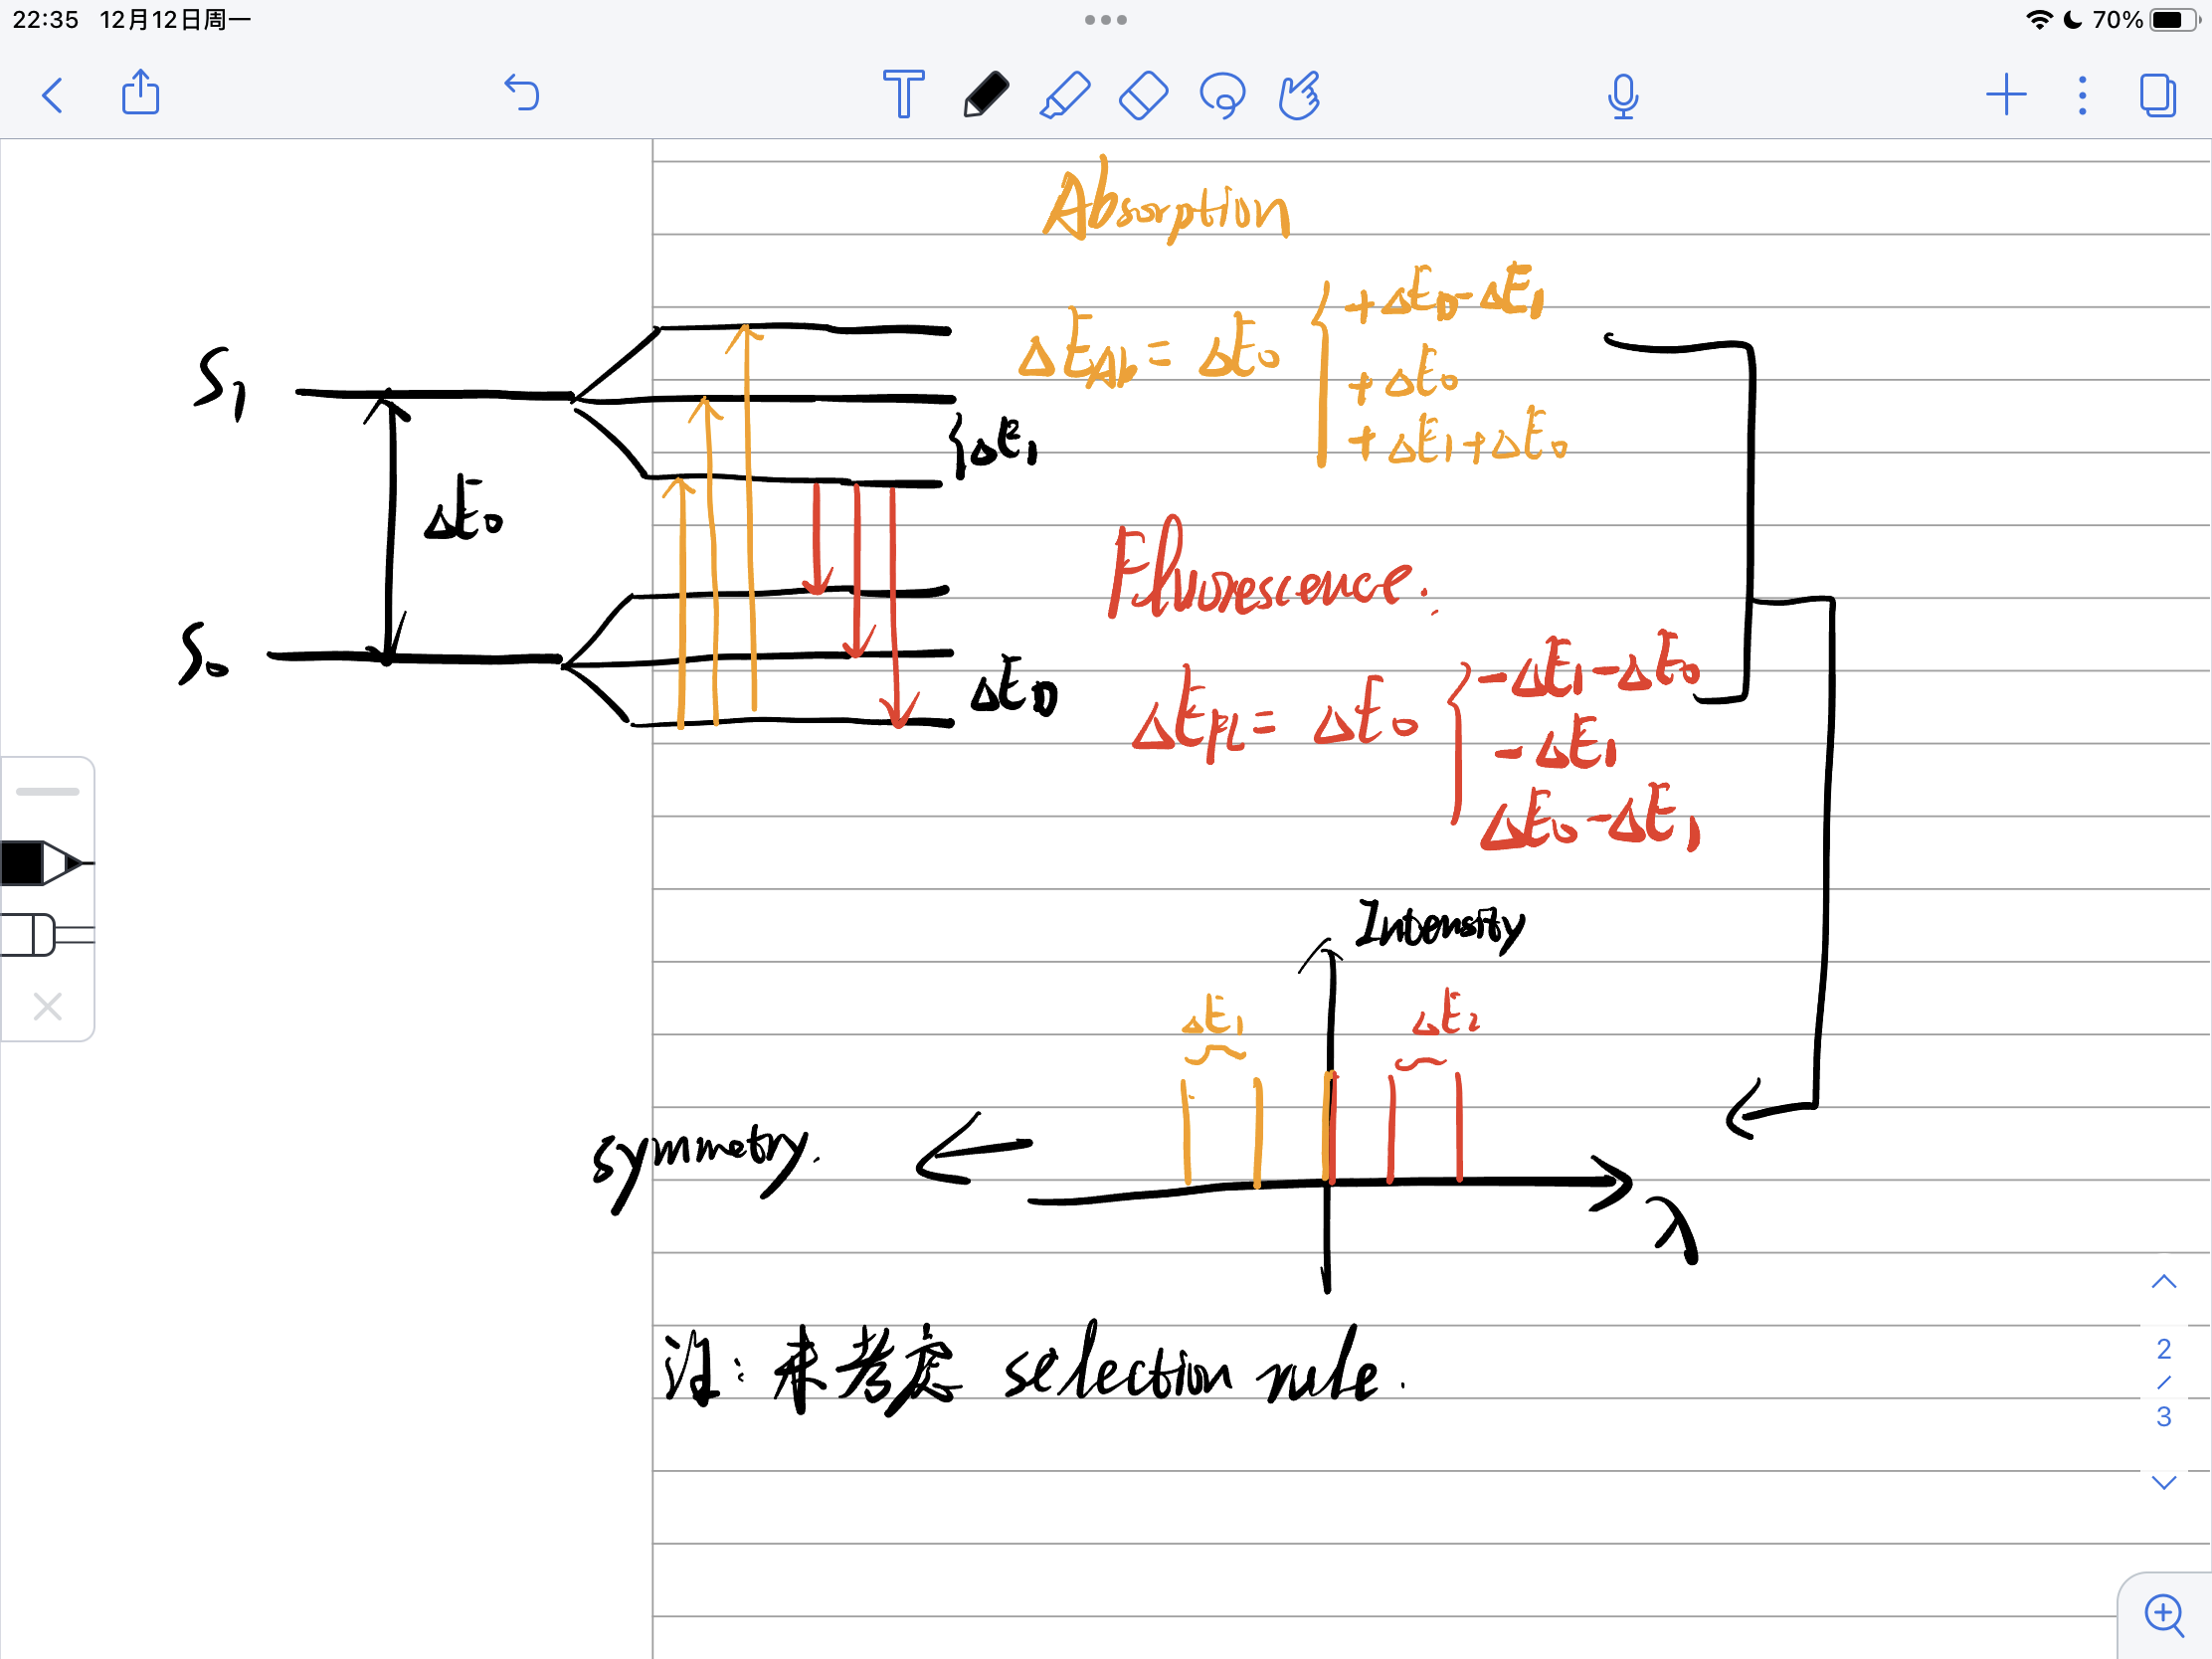 22:35 12月12日周一
70%
Absorption
+ΔE₀-ΔE₁
ΔE_Ab = ΔE₀
+ΔE₀
+ΔE₁+ΔE₀
S₁
}ΔE₁
ΔE₀
Fluorescence.
S₀
ΔE₀
-ΔE₁-ΔE₀
ΔE_FL = ΔE₀
-ΔE₁
ΔE₀-ΔE₁
Intensity
ΔE₁
ΔE₂
symmetry.
λ
注: 未考虑 selection rule.
2
/
3